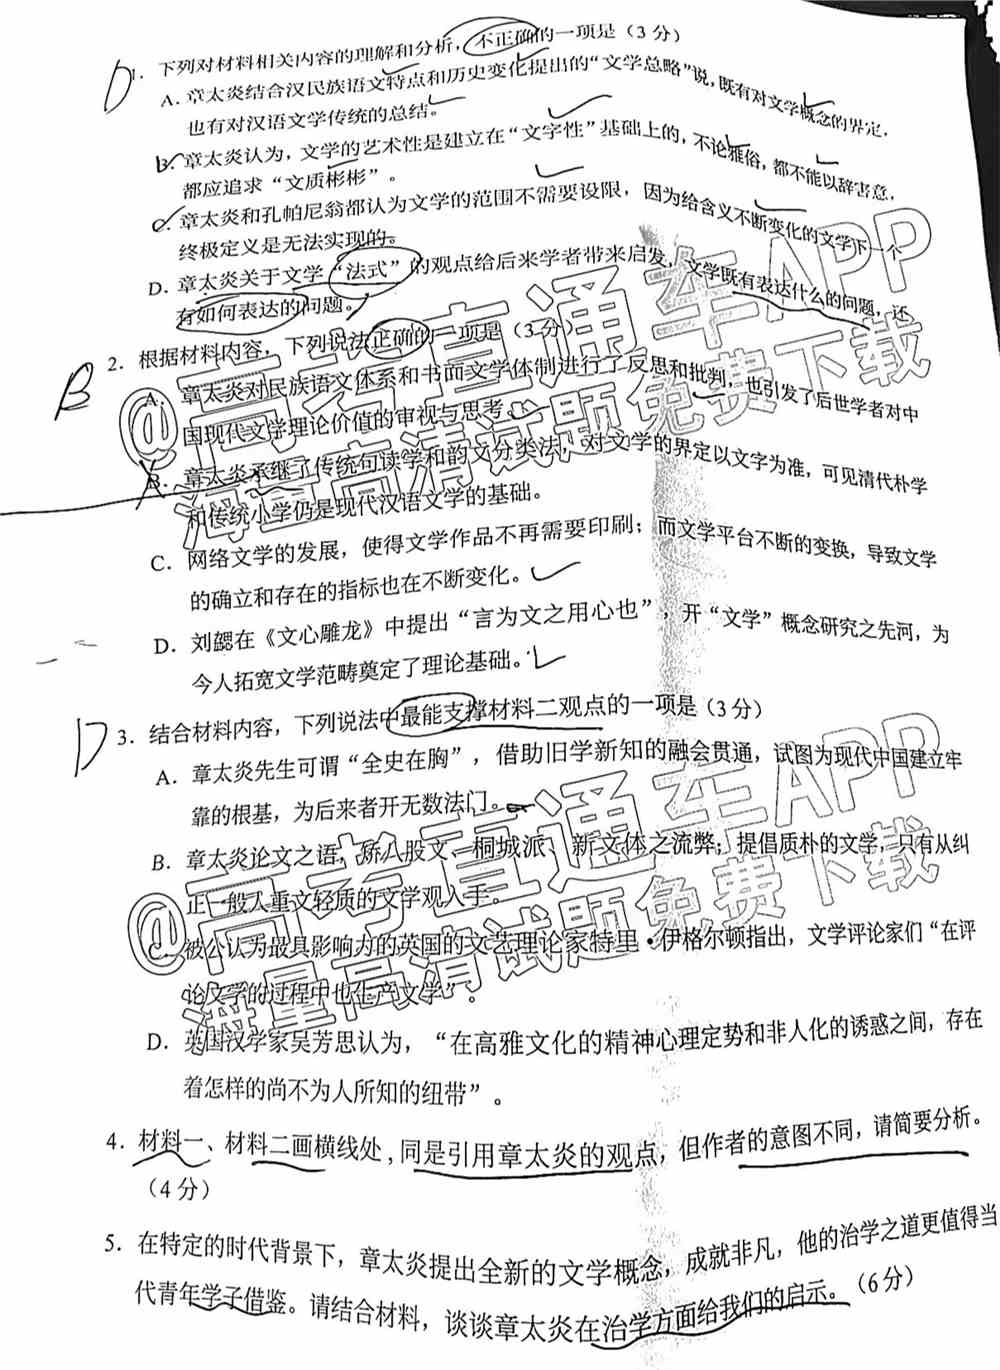 D
1. 下列对材料相关内容的理解和分析，不正确的一项是（3 分）
A. 章太炎结合汉民族语文特点和历史变化提出的“文学总略”说，既有对文学概念的界定，
也有对汉语文学传统的总结。
B. 章太炎认为，文学的艺术性是建立在“文字性”基础上的，不论雅俗，都不能以辞害意，
都应追求“文质彬彬”。
C. 章太炎和孔帕尼翁都认为文学的范围不需要设限，因为给含义不断变化的文学下一个
终极定义是无法实现的。
D. 章太炎关于文学“法式”的观点给后来学者带来启发，文学既有表达什么的问题，还
有如何表达的问题。
B
2. 根据材料内容，下列说法正确的一项是（3 分）
A. 章太炎对民族语文体系和书面文学体制进行了反思和批判，也引发了后世学者对中
国现代文学理论价值的审视与思考。
B. 章太炎承继了传统句读学和韵文分类法，对文学的界定以文字为准，可见清代朴学
和传统小学仍是现代汉语文学的基础。
C. 网络文学的发展，使得文学作品不再需要印刷；而文学平台不断的变换，导致文学
的确立和存在的指标也在不断变化。
D. 刘勰在《文心雕龙》中提出“言为文之用心也”，开“文学”概念研究之先河，为
今人拓宽文学范畴奠定了理论基础。
D
3. 结合材料内容，下列说法中最能支撑材料二观点的一项是（3 分）
A. 章太炎先生可谓“全史在胸”，借助旧学新知的融会贯通，试图为现代中国建立牢
靠的根基，为后来者开无数法门。
B. 章太炎论文之语，矫八股文、桐城派、新文体之流弊；提倡质朴的文学，只有从纠
正一般人重文轻质的文学观入手。
C. 被公认为最具影响力的英国的文艺理论家特里·伊格尔顿指出，文学评论家们“在评
论文学的过程中也生产文学”。
D. 英国汉学家吴芳思认为，“在高雅文化的精神心理定势和非人化的诱惑之间，存在
着怎样的尚不为人所知的纽带”。
4. 材料一、材料二画横线处，同是引用章太炎的观点，但作者的意图不同，请简要分析。
（4 分）
5. 在特定的时代背景下，章太炎提出全新的文学概念，成就非凡，他的治学之道更值得当
代青年学子借鉴。请结合材料，谈谈章太炎在治学方面给我们的启示。（6 分）
@高考直通车APP
海量高清试题免费下载
@高考直通车APP
海量高清试题免费下载